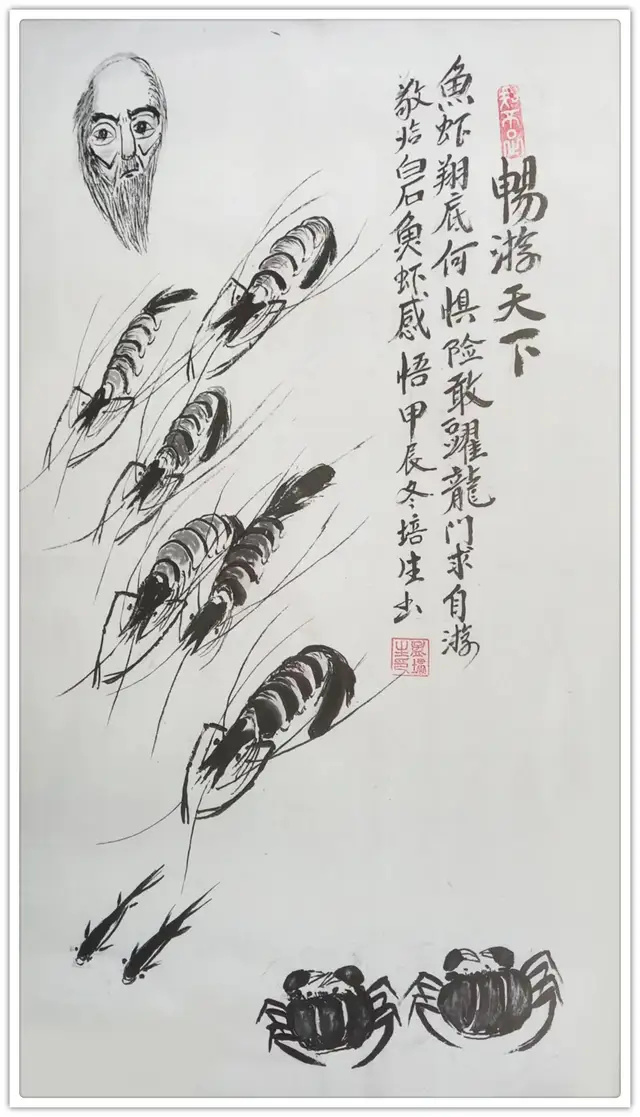 暢游天下
魚虾翔底何惧险敢躍龍门求自游
敬临白石魚虾感悟甲辰冬培生书